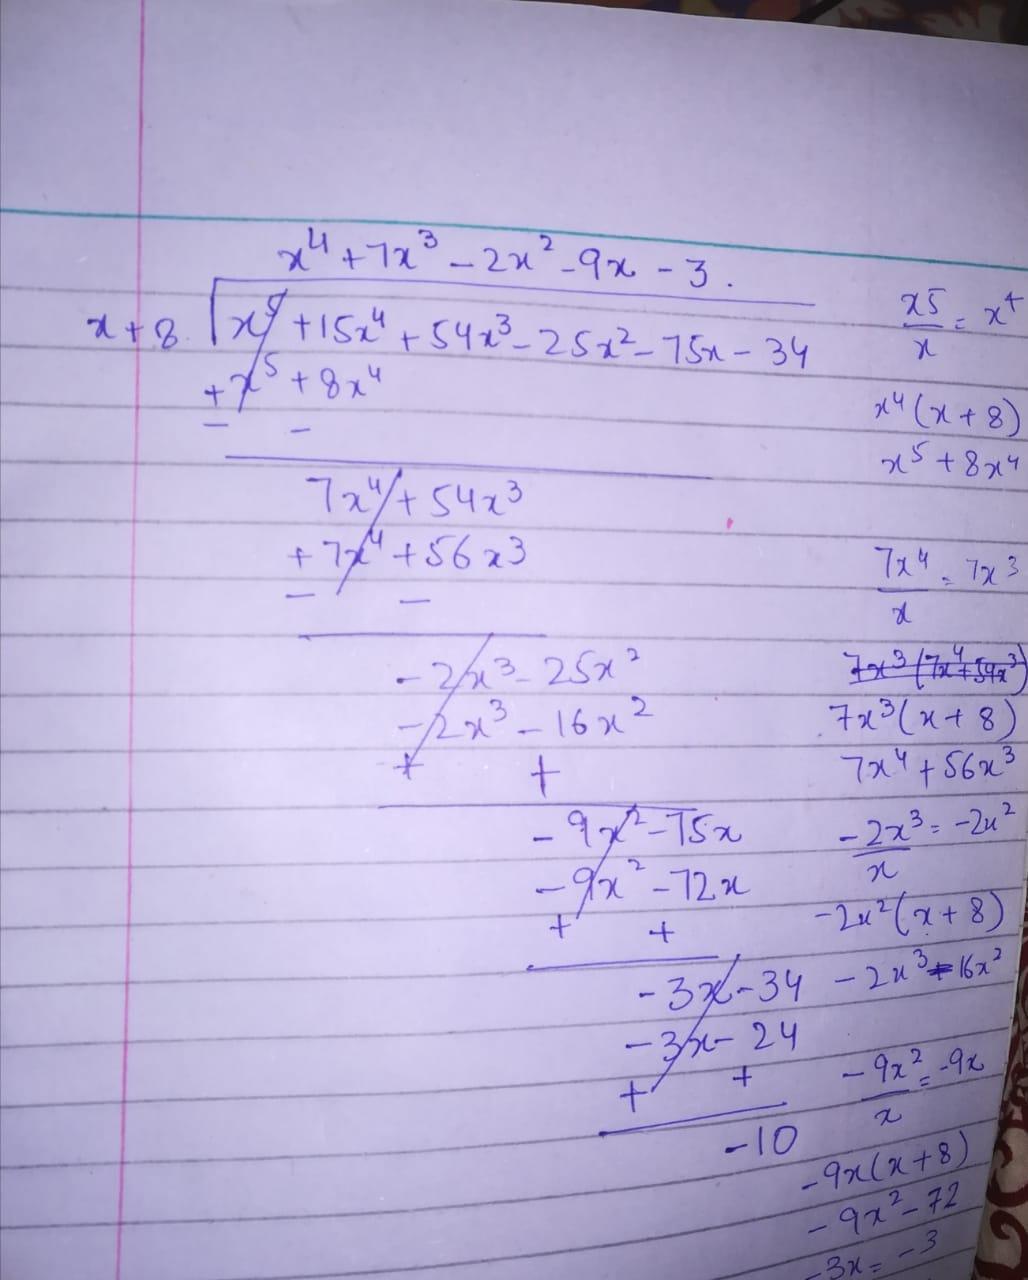 x⁴ + 7x³ - 2x² - 9x - 3.
x + 8 x⁵ + 15x⁴ + 54x³ - 25x² - 75x - 34
+ x⁵ + 8x⁴
- -
7x⁴ + 54x³
+ 7x⁴ + 56x3
- -
- 2x³ - 25x²
- 2x³ - 16x²
+ +
- 9x² - 75x
- 9x² - 72x
+ +
- 3x - 34
- 3x - 24
+ +
- 10
x5/x = x⁴
x⁴(x + 8)
x⁵ + 8x⁴
7x⁴/x = 7x³
7x³(7x⁴ + 54x³)
7x³(x + 8)
7x⁴ + 56x³
- 2x³/x = -2x²
- 2x²(x + 8)
- 2x³ - 16x²
- 9x²/x = -9x
- 9x(x + 8)
- 9x² - 72
- 3x = - 3